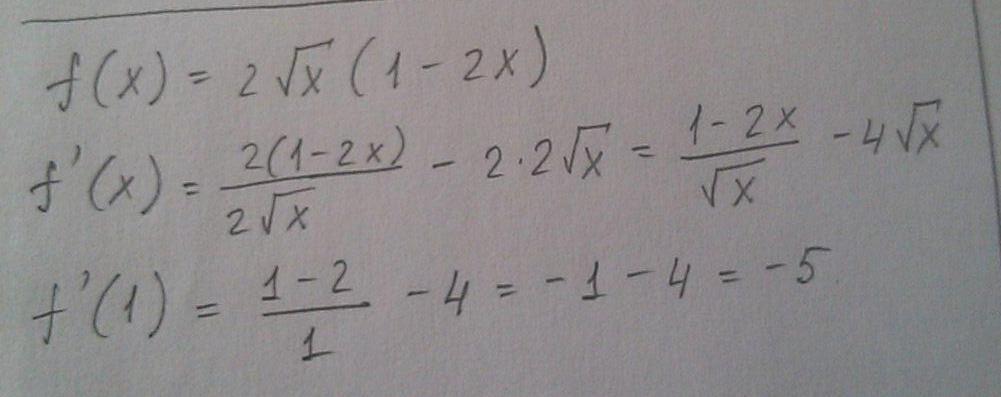 f(x) = 2√x (1 - 2x)
f'(x) = 2(1-2x)/2√x - 2·2√x = 1-2x/√x - 4√x
f'(1) = 1-2/1 - 4 = -1 - 4 = -5